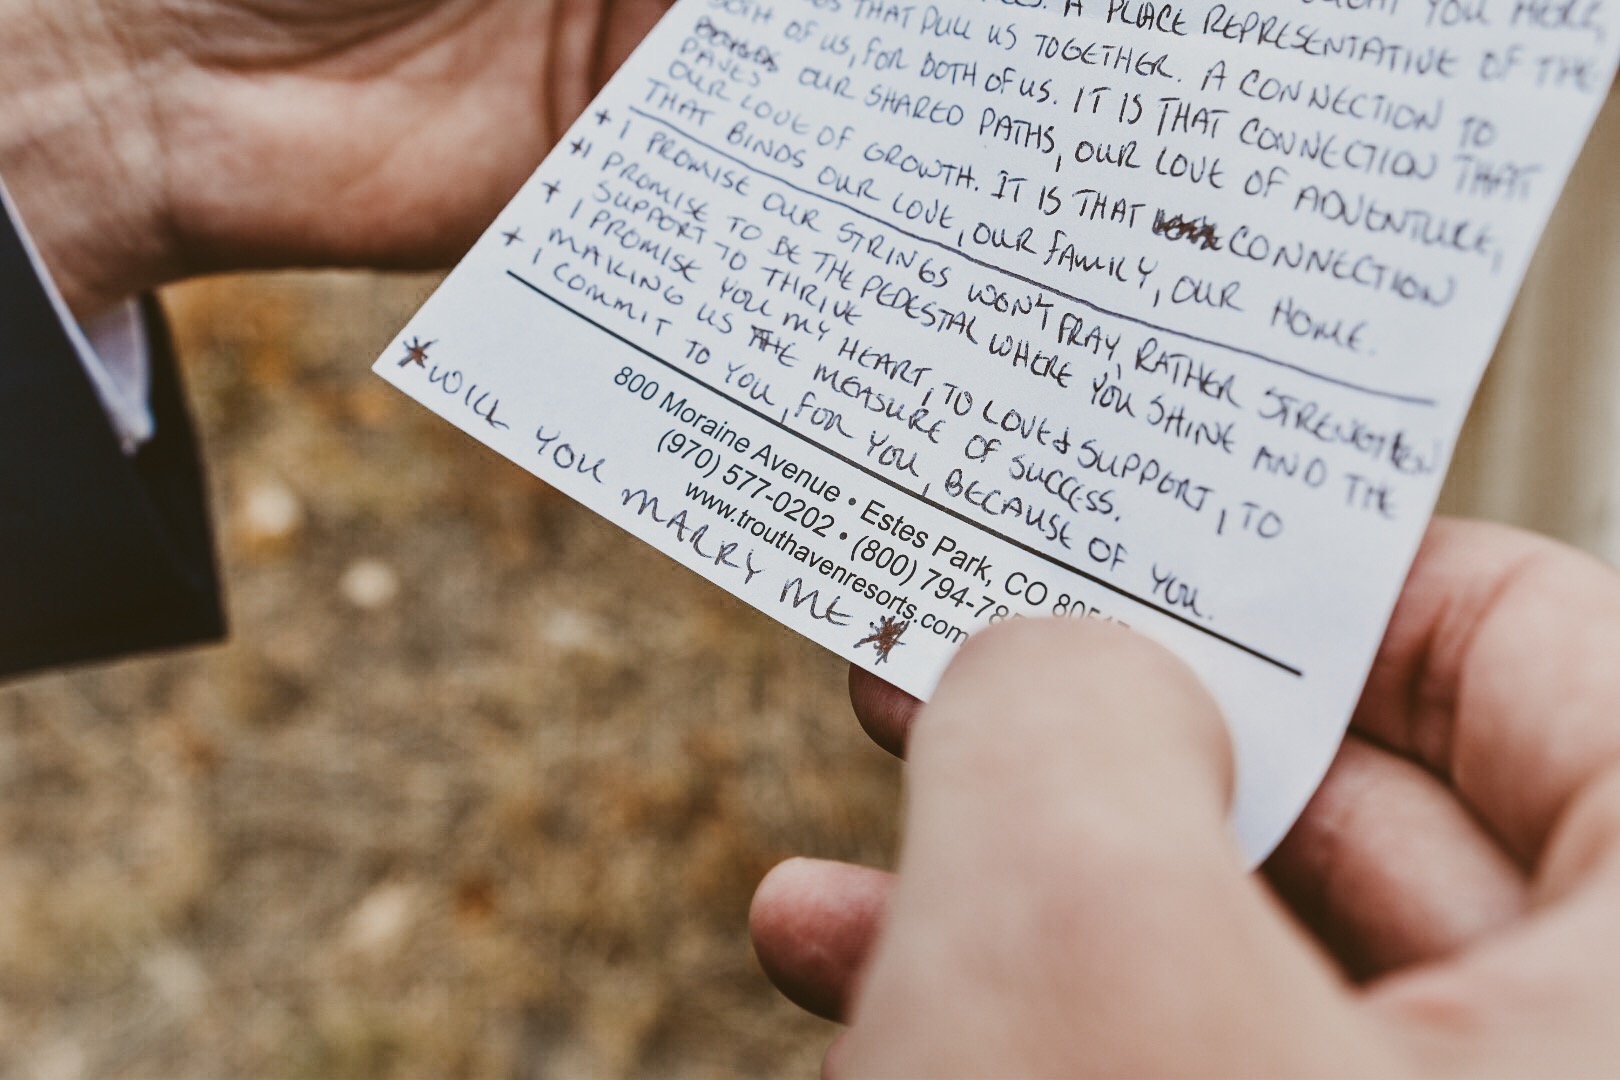 YOU HERE,
A PLACE REPRESENTATIVE OF THE
THAT PULL US TOGETHER. A CONNECTION TO
BOTH OF US, FOR BOTH OF US. IT IS THAT CONNECTION THAT
PAVES OUR SHARED PATHS, OUR LOVE OF ADVENTURE,
OUR LOVE OF GROWTH. IT IS THAT CONNECTION
THAT BINDS OUR LOVE, OUR FAMILY, OUR HOME.
+ I PROMISE OUR STRINGS WON'T FRAY, RATHER STRENGTHEN
+ I PROMISE TO BE THE PEDESTAL WHERE YOU SHINE AND THE
SUPPORT TO THRIVE
+ I PROMISE YOU MY HEART, TO LOVE & SUPPORT, TO
MAKING US THE MEASURE OF SUCCESS.
+ I COMMIT TO YOU, FOR YOU, BECAUSE OF YOU.
800 Moraine Avenue • Estes Park, CO
(970) 577-0202 • (800) 794-78
www.trouthavenresorts.com
*WILL YOU MARRY ME*